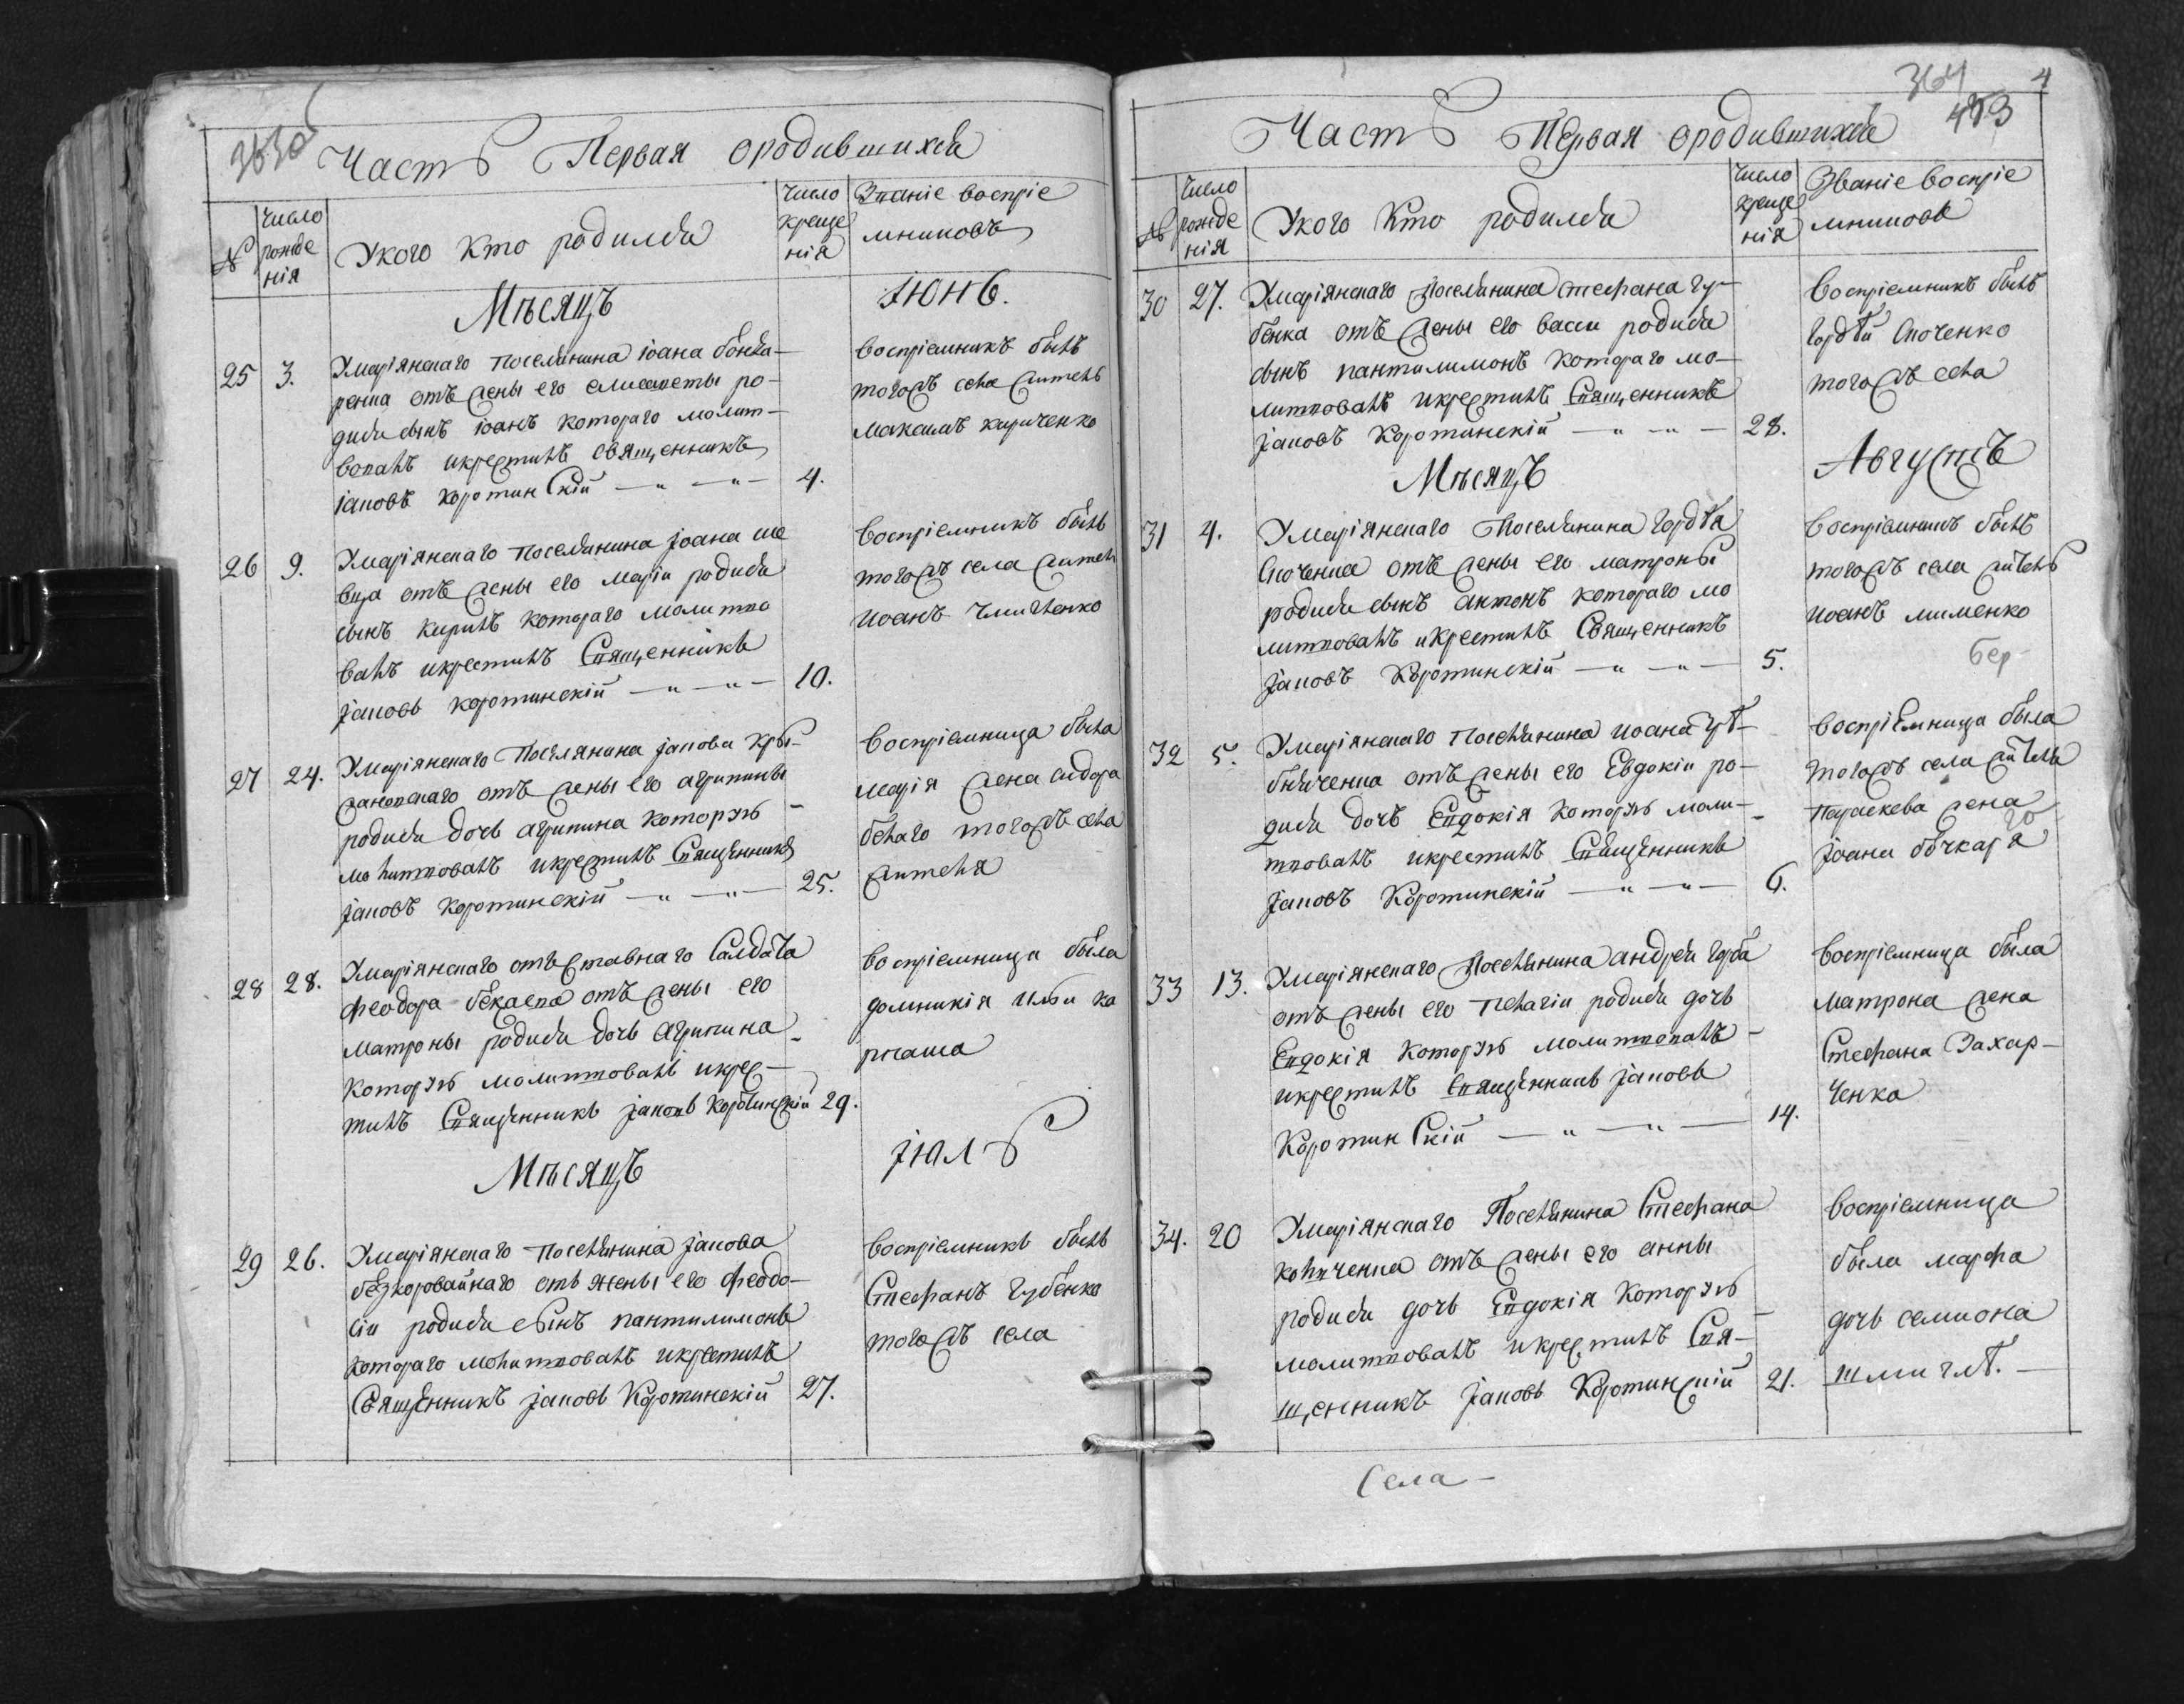 Часть Первая ородившихся
№
Число рожде нія
Укого Кто родился
Число креще нія
Званіе воспріе мниковъ
Мѣсяцъ Іюнь.
25 3. Умаріянскаго поселянина іоана
отъ жены его елисаветы ро-
дился сынъ іоанъ котораго молит-
вовалъ икрестилъ священникъ
іаковъ коротинскій — „ — „ — 4.
воспріемникъ былъ
тогожъ села житель
максимъ кириченко
26 9. Умаріянскаго поселянина іоана ше
вца отъ жены его маріи родился
сынъ кирилъ котораго молитво
валъ икрестилъ Священникъ
іаковъ коротинскій — „ — „ — 10.
воспріемникъ былъ
тогожъ села житель
иоанъ
27 24. Умаріянскаго Поселянина іакова кры-
жановскаго отъ жены его агрипины
родися дочь агрипина которую
молитвовалъ икрестилъ Священникъ
іаковъ коротинскій — „ — „ — 25.
воспріемница была
марія жена сидора
белаго тогожъ села
жителя
28 28. Умаріянскаго отъставнаго Салдата
феодора отъ жены его
матроны родися дочь агрипина
которую молитвовалъ икрес-
тилъ Священникъ іаковъ коротинскій 29.
воспріемница была
домникія
Мѣсяцъ Іюль
29 26. Умаріянскаго поселянина іакова
безкоровайнаго отъ жены его феодо-
сіи родися сынъ пантилимонъ
котораго молитвовалъ икрестилъ
Священникъ іаковъ Коротинскій 27.
воспріемникъ былъ
Стефанъ губенко
тогожъ села
364
4
483
Часть Первая ородившихся
№
Число рожде нія
Укого Кто родился
Число креще нія
Званіе воспріе мниковъ
30 27. Умаріянскаго поселянина стефана гу-
бенка отъ жены его васси родися
сынъ пантилимонъ котораго мо-
литвовалъ икрестилъ Священникъ
іаковъ Коротинскій — „ — „ — 28.
воспріемникъ былъ
гордѣй
тогожъ села
Мѣсяцъ Августъ
31 4. Умаріянскаго Поселянина гордѣя
отъ жены его матроны
родися сынъ антонъ котораго мо
литвовалъ икрестилъ Священникъ
іаковъ Коротинскій — „ — „ — 5.
воспріемникъ былъ
тогожъ села житель
иоанъ клименко
Бер-
32 5. Умаріянскаго поселянина иоана
отъ жены его Евдокіи ро-
дися дочь Евдокія которую моли-
твовалъ икрестилъ Священникъ
іаковъ Коротинскій — „ — „ — 6.
воспріемница была
тогожъ села житель
Параскева жена
іоана бочкаря
33 13. Умаріянскаго Поселянина андрея горба
отъ жены его пелагіи родися дочь
Евдокія которую молитвовалъ
икрестилъ священникъ іаковъ
Коротинскій — „ — „ — 14.
воспріемница была
матрона жена
Стефана Захар-
ченка
34. 20 Умаріянскаго Поселянина Стефана
отъ жены его анны
родися дочь Евдокія которую
молитвовалъ икрестилъ Свя-
щенникъ іаковъ Коротинскій 21.
воспріемница
была марфа
дочь семиона
Села —